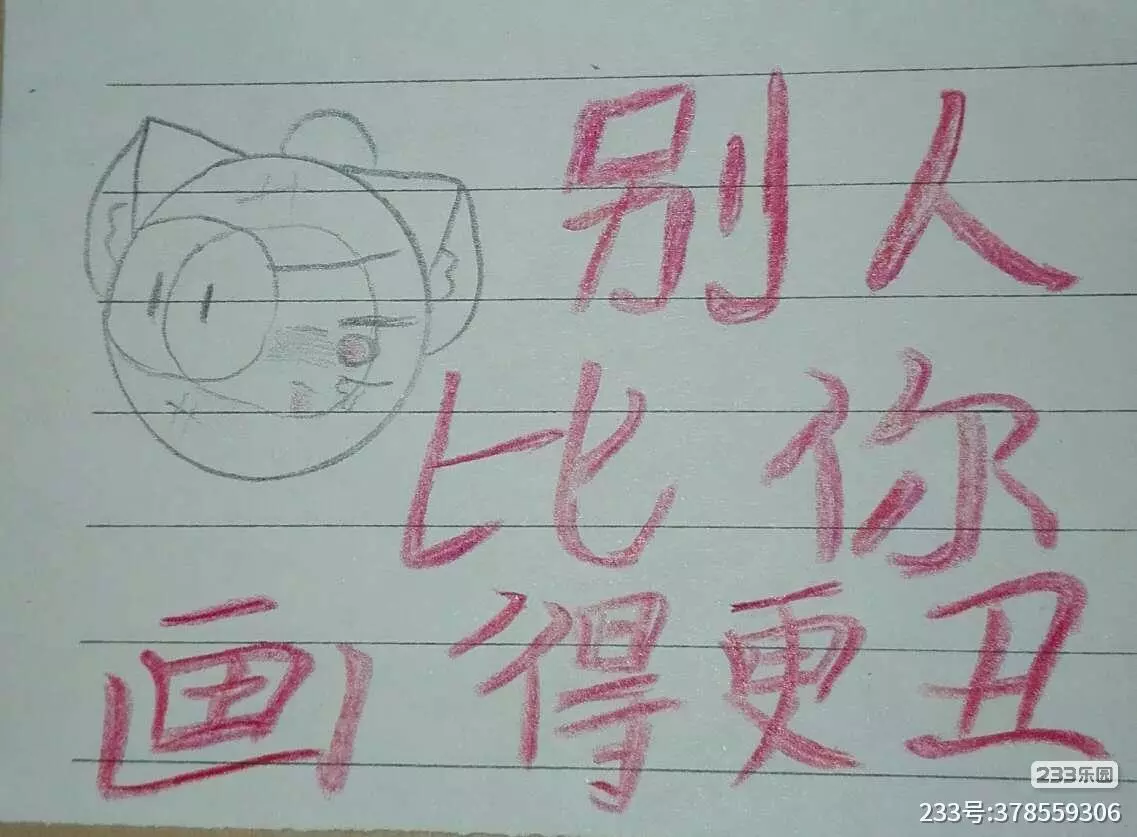 别人
比你
画得更丑
233乐园
233号:378559306